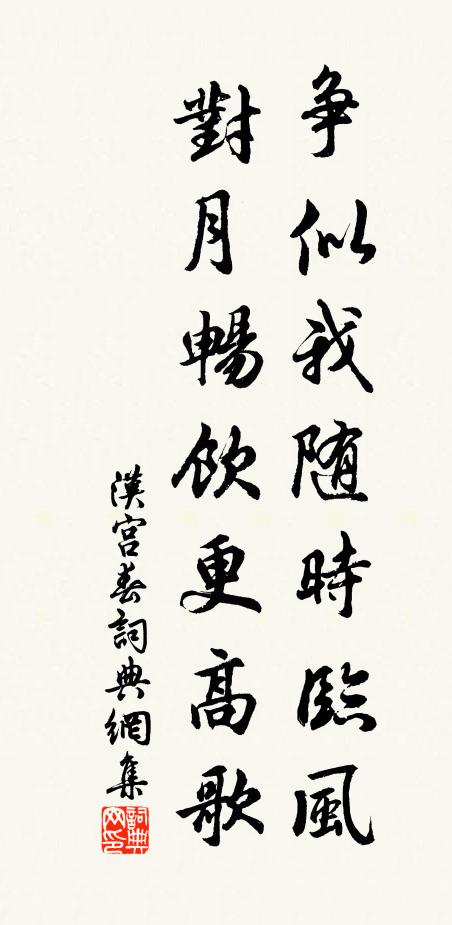 争似我随時臨風
對月暢飲更高歌
漢宮春詞典網集
詞典网印